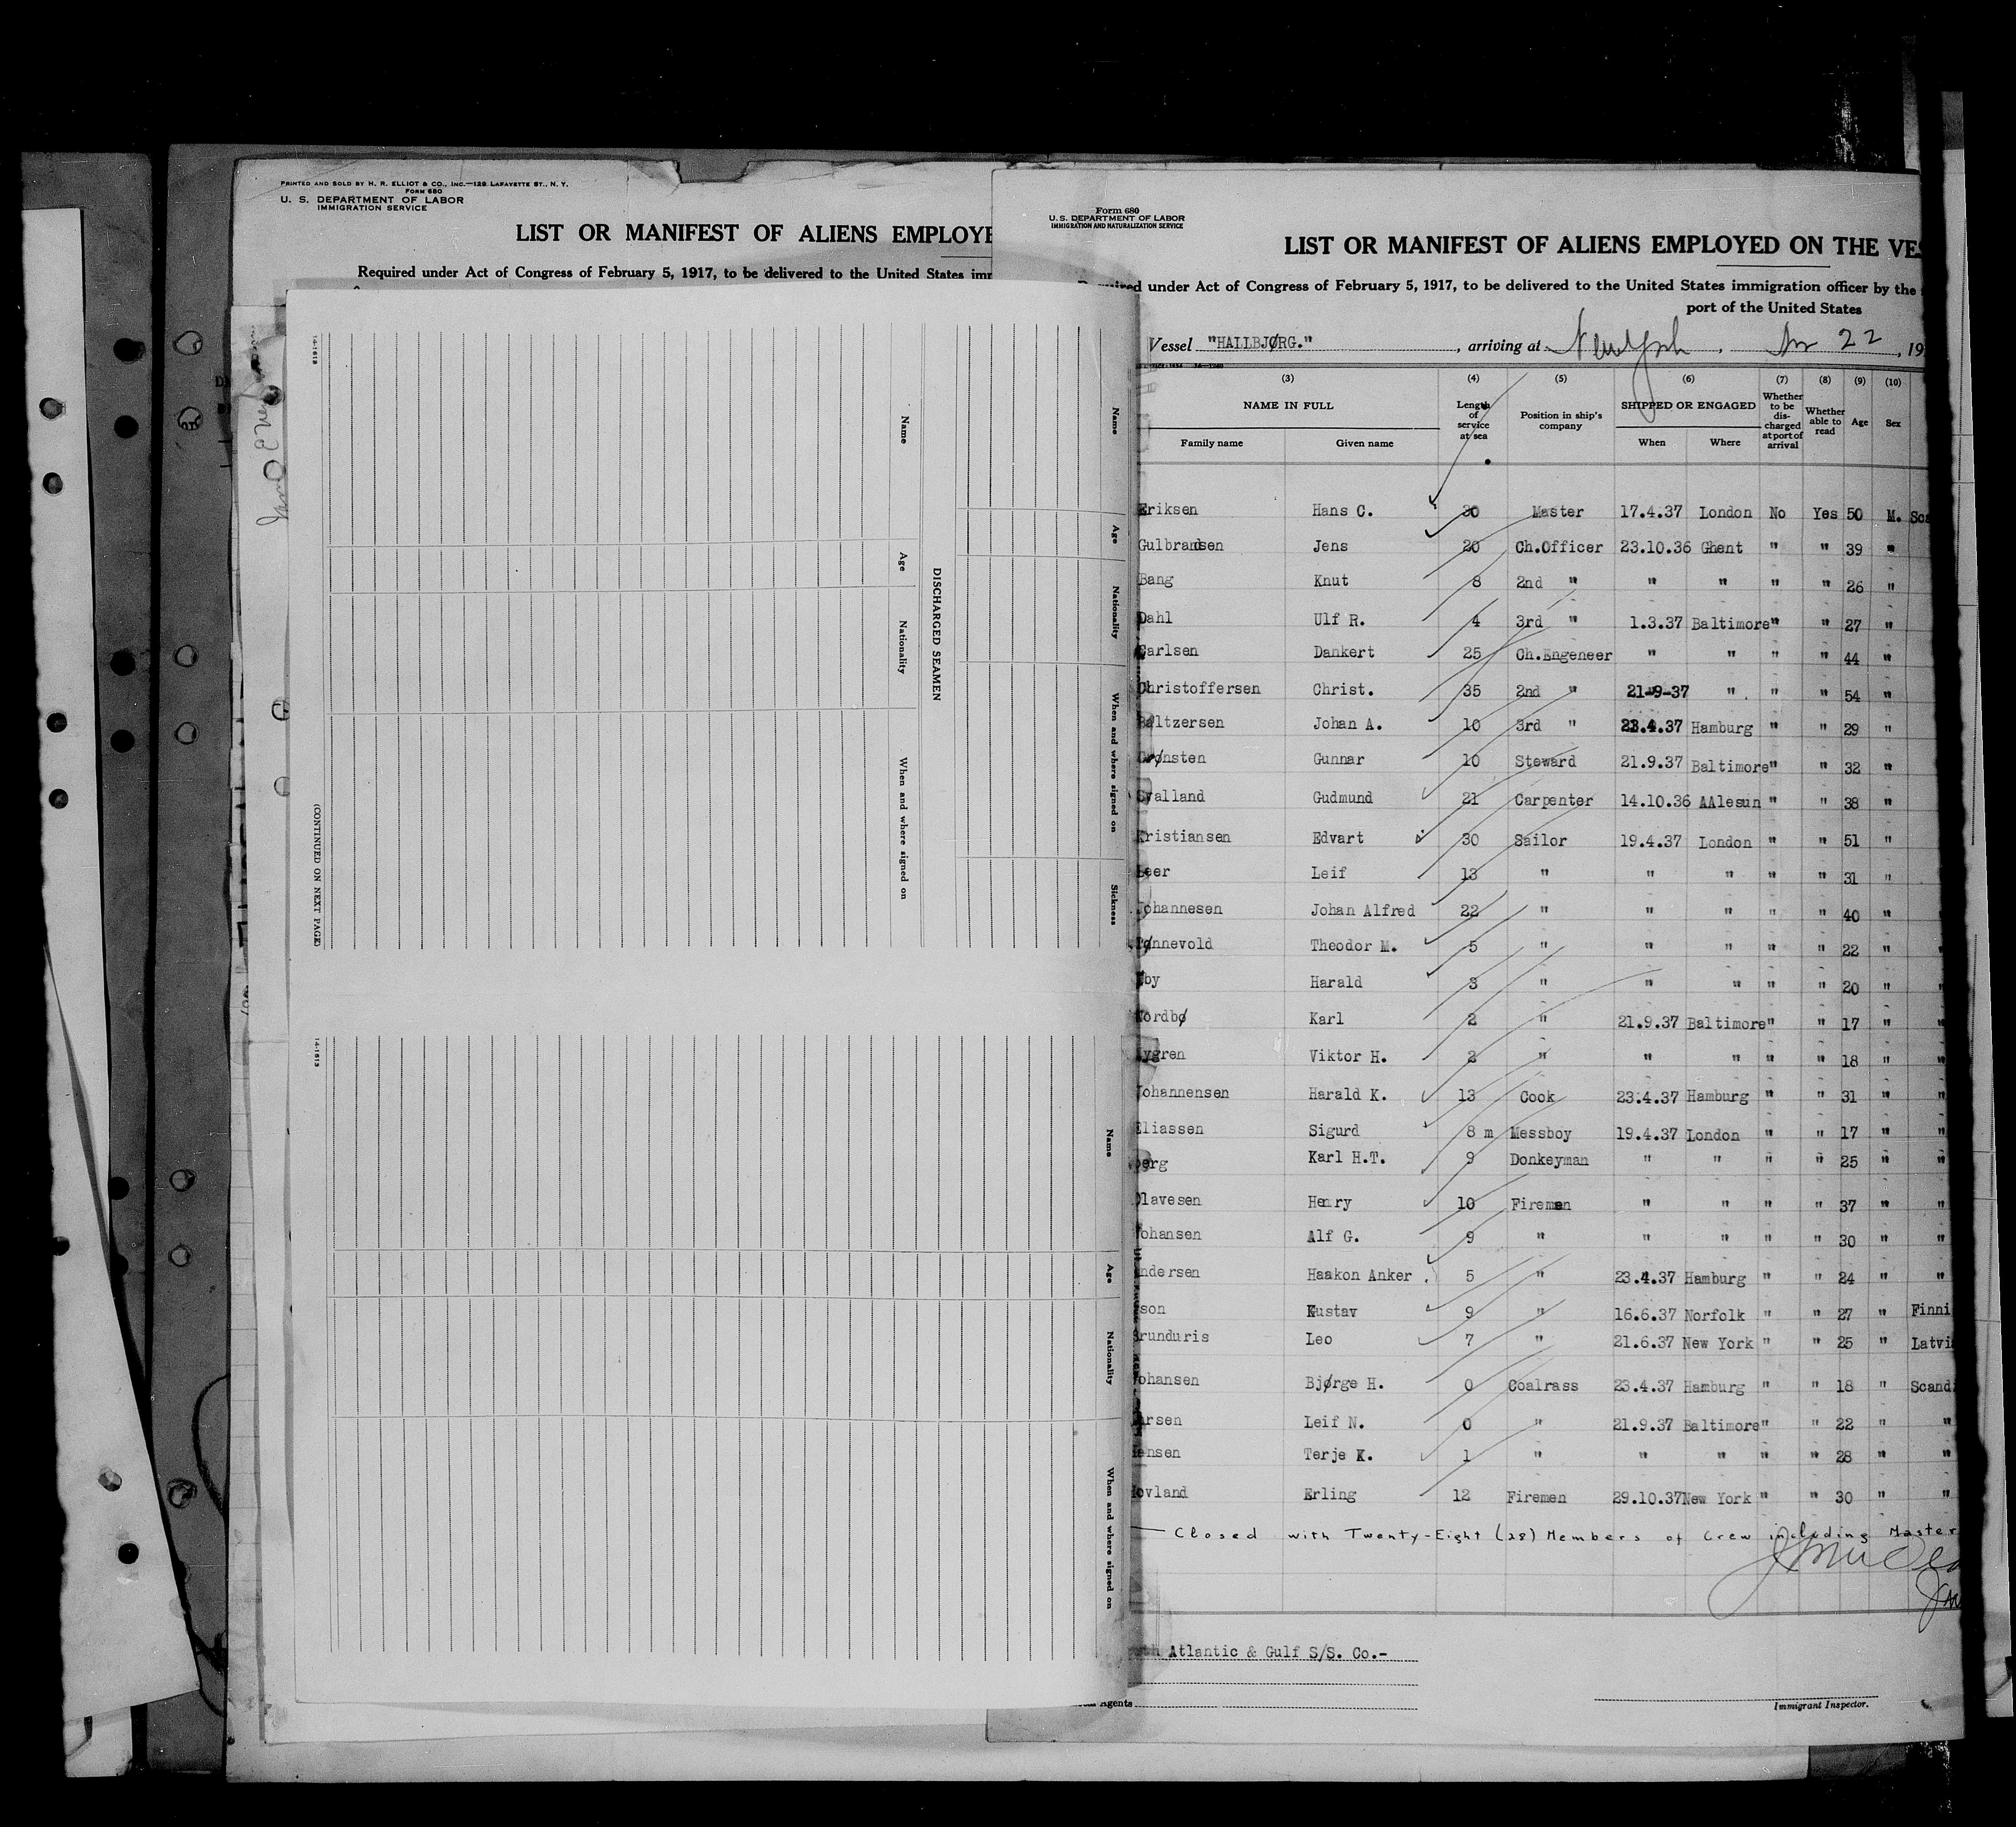 PRINTED AND SOLD BY H. R. ELLIOT & CO., INC.—129 LAFAYETTE ST., N. Y.
FORM 680
U. S. DEPARTMENT OF LABOR
IMMIGRATION SERVICE
LIST OR MANIFEST OF ALIENS EMPLOYE
Required under Act of Congress of February 5, 1917, to be delivered to the United States imm
Name
Age
Nationality
When and where signed on
Sickness
DISCHARGED SEAMEN
Name
Age
Nationality
When and where signed on
(CONTINUED ON NEXT PAGE)
14-1613
Name
Age
Nationality
When and where signed on
14-1613
Form 680
U. S. DEPARTMENT OF LABOR
IMMIGRATION AND NATURALIZATION SERVICE
LIST OR MANIFEST OF ALIENS EMPLOYED ON THE VES
under Act of Congress of February 5, 1917, to be delivered to the United States immigration officer by the
port of the United States
Vessel "HALLBJØRG." , arriving at New York , 22 , 19
(3) (4) (5) (6) (7) (8) (9) (10)
NAME IN FULL Length of service at sea Position in ship's company SHIPPED OR ENGAGED Whether to be discharged at port of arrival Whether able to read Age Sex
Family name Given name When Where
Eriksen Hans C. 30 Master 17.4.37 London No Yes 50 M. Sca
Gulbrandsen Jens 20 Ch.Officer 23.10.36 Ghent " " 39 "
Bang Knut 8 2nd " " " " " 26 "
Dahl Ulf R. 4 3rd " 1.3.37 Baltimore " " 27 "
Carlsen Dankert 25 Ch.Engeneer " " " " 44 "
Christoffersen Christ. 35 2nd " 21-9-37 " " " 54 "
Baltzersen Johan A. 10 3rd " 23.4.37 Hamburg " " 29 "
Grønsten Gunnar 10 Steward 21.9.37 Baltimore " " 32 "
valland Gudmund 21 Carpenter 14.10.36 AAlesun " " 38 "
Kristiansen Edvart 30 Sailor 19.4.37 London " " 51 "
eer Leif 13 " " " " " 31 "
Johannesen Johan Alfred 22 " " " " " 40 "
Tønnevold Theodor M. 5 " " " " " 22 " "
by Harald 3 " " " " " 20 " "
Nordbø Karl 2 " 21.9.37 Baltimore " " 17 " "
ygren Viktor H. 2 " " " " " 18 " "
Johannensen Harald K. 13 Cook 23.4.37 Hamburg " " 31 " "
Eliassen Sigurd 8 m Messboy 19.4.37 London " " 17 " "
berg Karl H.T. 9 Donkeyman " " " " 25 " "
Olavesen Henry 10 Firemen " " " " 37 " "
Johansen Alf G. 9 " " " " " 30 " "
ndersen Haakon Anker 5 " 23.4.37 Hamburg " " 24 " "
son Kustav 9 " 16.6.37 Norfolk " " 27 " Finni
runduris Leo 7 " 21.6.37 New York " " 25 " Latvi
ohansen Bjørge H. 0 Coalrass 23.4.37 Hamburg " " 18 " Scandi
arsen Leif N. 0 " 21.9.37 Baltimore " " 22 " "
ensen Terje K. 1 " " " " " 28 " "
ovland Erling 12 Firemen 29.10.37 New York " " 30 " "
Closed with Twenty-Eight (28) Members of Crew including Master
th Atlantic & Gulf S/S. Co.-
Agents
Immigrant Inspector.